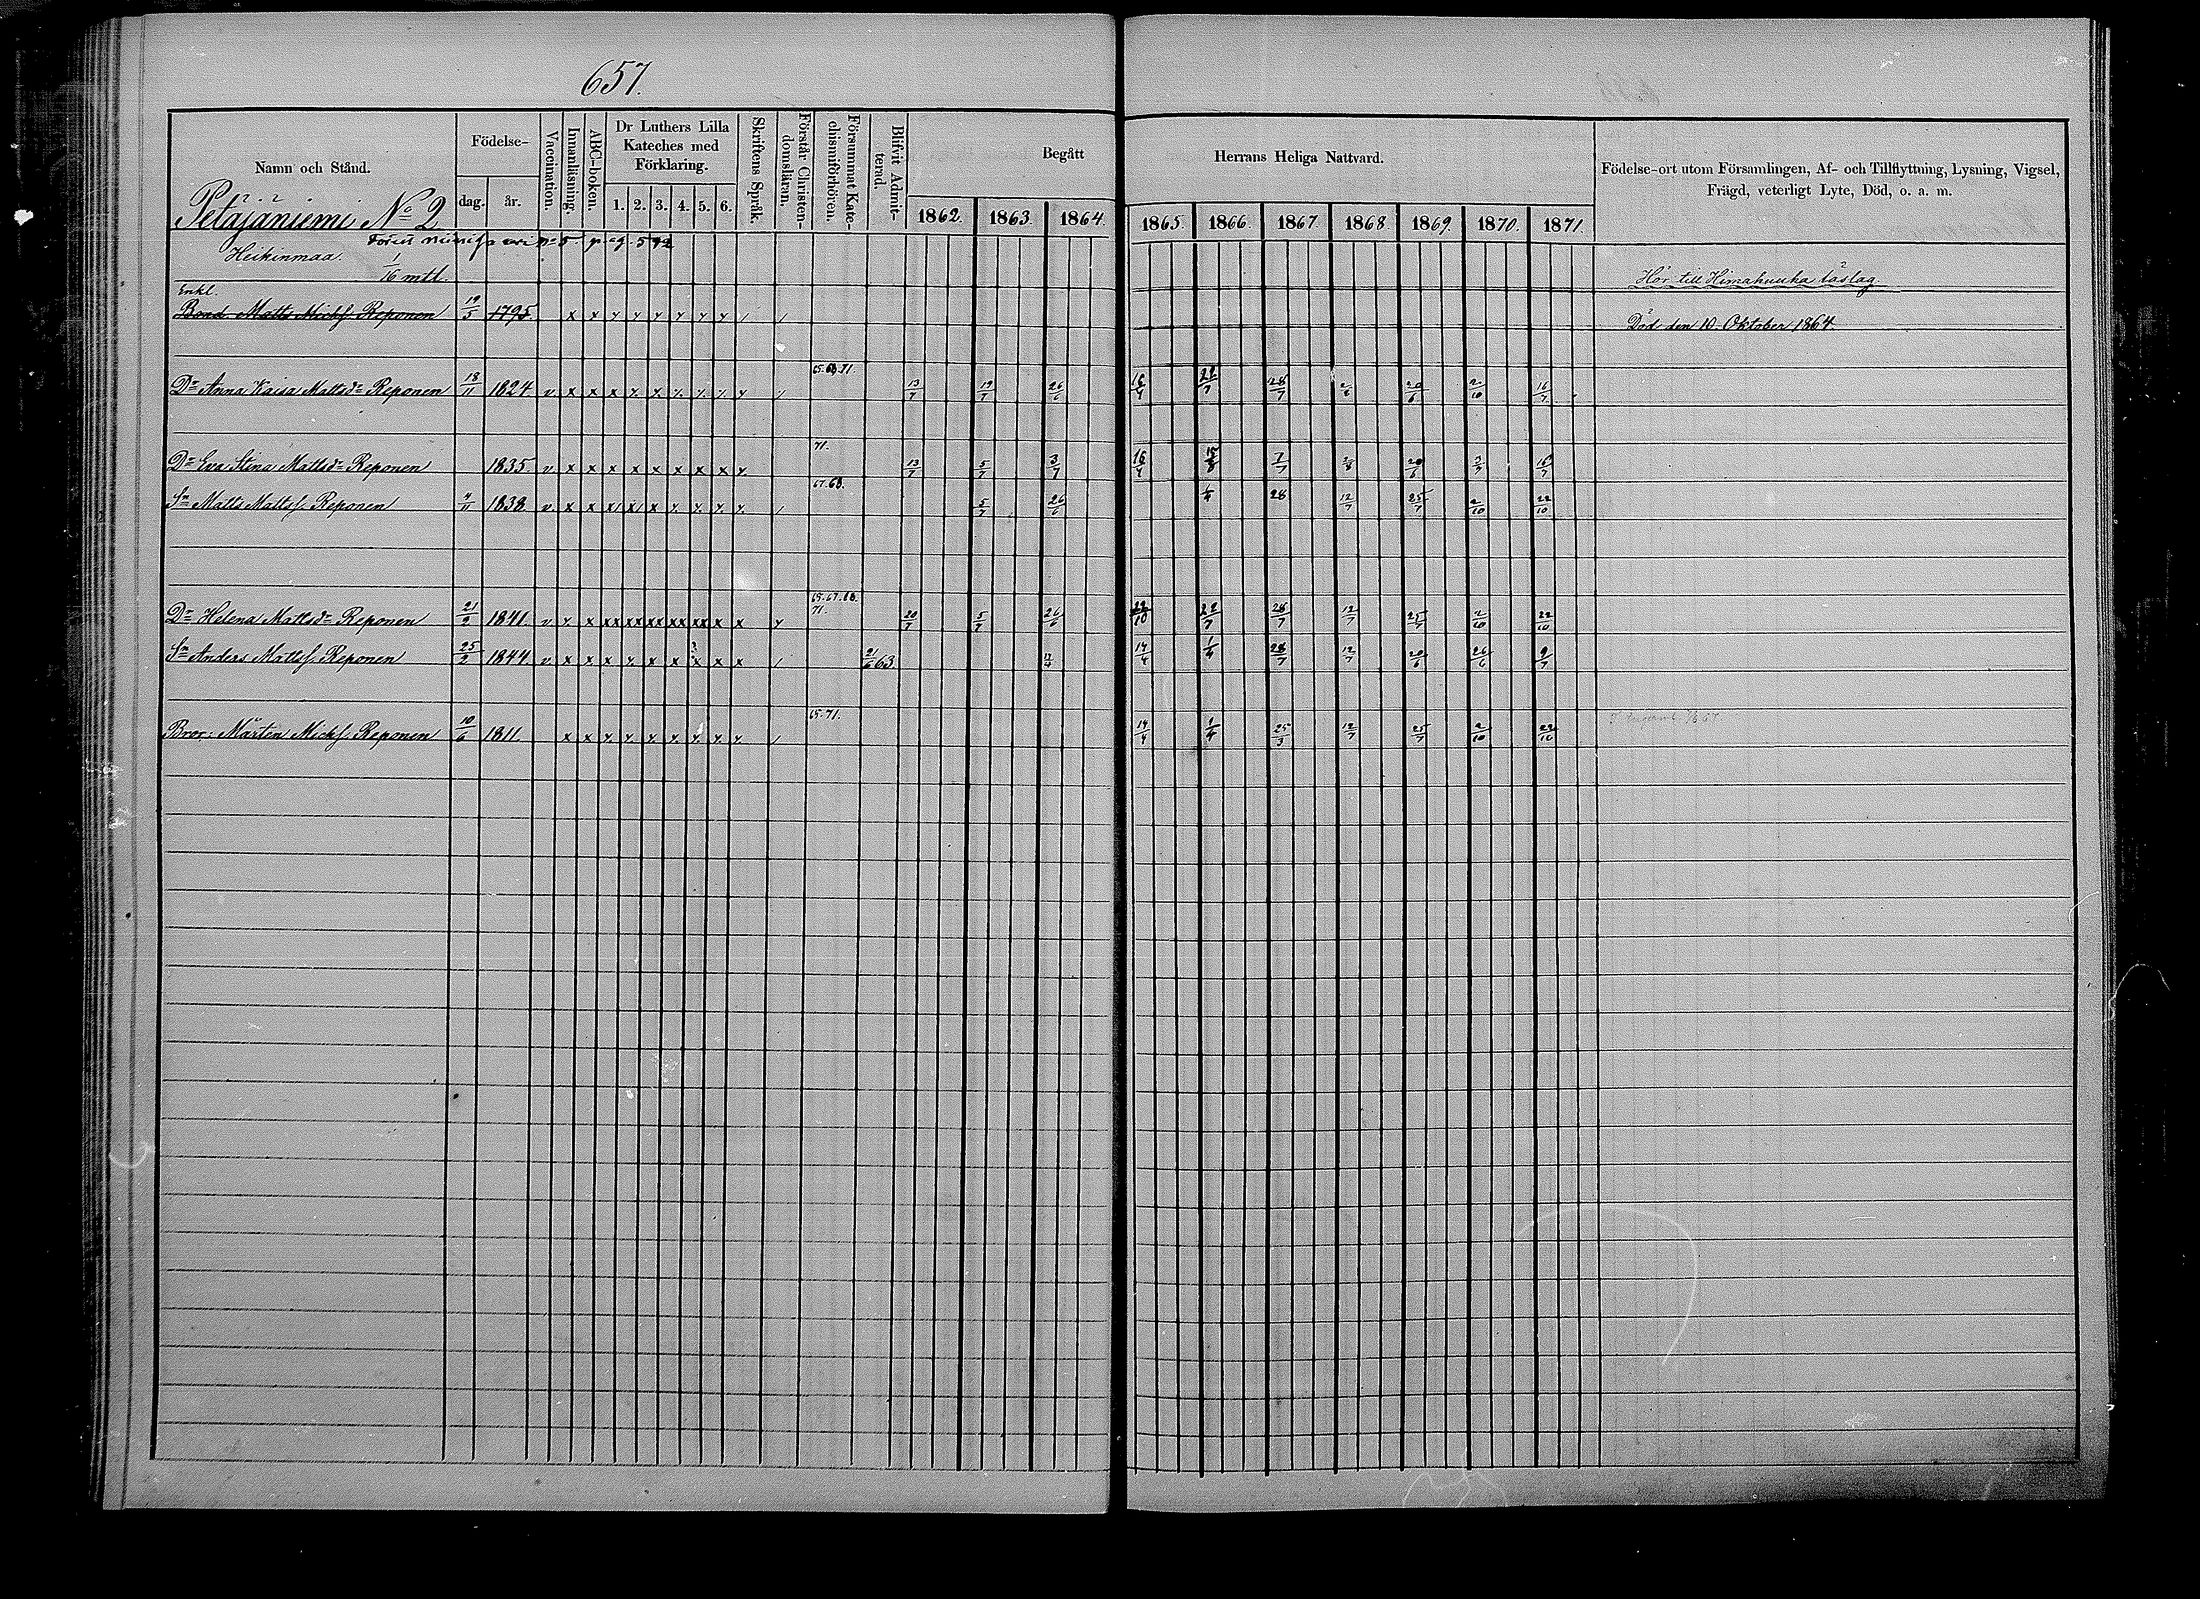 657.
Namn och Stånd.
Födelse-
dag.
år.
Vaccination.
Innanläsning.
ABC-boken.
Dr Luthers Lilla
Kateches med
Förklaring.
1. 2. 3. 4. 5. 6.
Skriftens Språk.
Förstår Christen-
domsläran.
Försummat Kate-
chismiförhören.
Blifvit Admit-
terad.
Begått
Herrans Heliga Nattvard.
1862. 1863. 1864. 1865. 1866. 1867. 1868. 1869. 1870. 1871.
Födelse-ort utom Församlingen, Af- och Tillflyttning, Lysning, Vigsel,
Frägd, veterligt Lyte, Död, o. a. m.
Petäjäniemi No 2
Heikinmaa.
1/16 mtl.
Hör till Himahuuha låslag
Enkl.
Bond Matts Michs. Reponen 19/5 1795. x x y y y y y y / /
Död den 10 Oktober 1864
65.68.71.
Dr Anna Kaisa Mattsdr Reponen 18/11 1824 v x x x y. y. y. y. y. y / 13/7 19/7 26/6 16/4 22/7 28/7 2/8 20/6 2/10 16/7
71.
Dr Eva Stina Mattsdr Reponen 1835 v x x x x x x x x y. 13/7 5/7 3/7 16/4 15/8 7/7 2/8 20/6 3/7 16/7
67.68.
Sn Matts Matts. Reponen 4/11 1838 v x x x/ x/ x y. y. y. y. / 5/7 26/6 1/4 28 12/7 25/7 2/10 22/10
65.67.68.
71.
Dr Helena Mattsdr Reponen 21/2 1841. v y. x xx xx xx xx xx x x y 20/7 5/7 26/6 22/10 22/7 28/7 12/7 25/7 2/10 22/10
Sn Anders Matts. Reponen 25/2 1844 v x x x y x x x x x / 21/6 63 14/4 1/4 28/7 12/7 20/6 26/6 9/7
65.71.
Bror: Mårten Michs. Reponen 10/6 1811. x x y. y. y. y. y. y. y. / 14/4 1/4 25/3 12/7 25/7 2/10 22/10